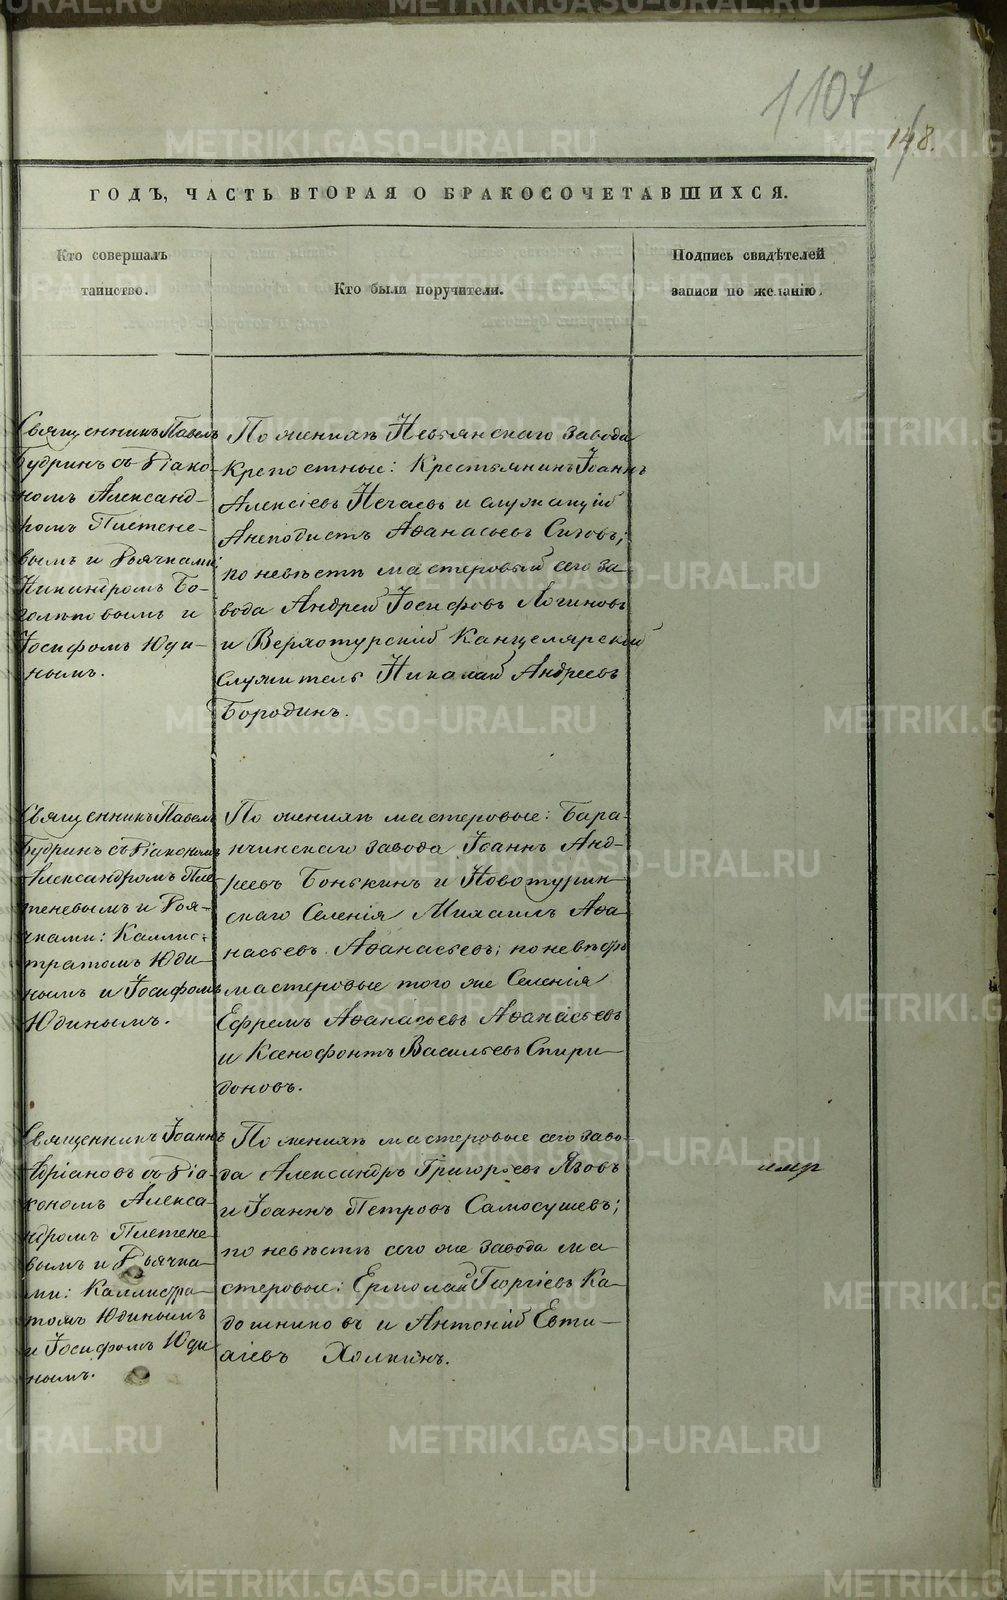 1107
148.
ГОДЪ, ЧАСТЬ ВТОРАЯ О БРАКОСОЧЕТАВШИХСЯ.
Кто совершалъ
таинство.
Кто были поручители.
Подпись свидѣтелей
записи по желанію.
Священникъ Павелъ
Будринъ съ Діако-
номъ Александ-
ромъ Плетене-
вымъ и Дьячками:
Никандромъ Бо-
голѣповымъ и
Іосифомъ Юди-
нымъ.
По женихѣ Невьянскаго завода
крепостные: Крестьянинъ Іоаннъ
Алексіевъ Нечаевъ и служащій
Анеподистъ Аѳанасьевъ Сизовъ;
по невѣстѣ мастеровый сего за-
вода Андрей Іосифовъ Логиновъ
и Верхотурскій Канцелярскій
служитель Николай Андреевъ
Бородинъ.
Священникъ Павелъ
Будринъ съ Діакономъ
Александромъ Пле-
теневымъ и Дья-
чками: Каллис-
тратомъ Юди-
нымъ и Іосифомъ
Юдинымъ.
По женихѣ мастеровые: Бара-
нчинскаго завода Іоаннъ Анд-
реевъ Бонькинъ и Новотурин-
скаго Селенія Михаилъ Аѳа-
насьевъ Аѳанасьевъ; по невѣстѣ
мастеровые того же Селенія
Ефремъ Аѳанасьевъ Аѳанасьевъ
и Ксенофонтъ Васильевъ Спири-
доновъ.
Священникъ Іоаннъ
Адріановъ съ Діа-
кономъ Алекса-
ндромъ Плетене-
вымъ и Дьячка-
ми: Каллистра-
томъ Юдинымъ
и Іосифомъ Юди-
нымъ.
По женихѣ мастеровые сего заво-
да Александръ Григорьевъ Язовъ
и Іоаннъ Петровъ Самосушевъ;
по невѣстѣ сего же завода ма-
стеровые: Ермолай Георгіевъ Ка-
дошниковъ и Антоній Евти-
хіевъ Холкинъ.